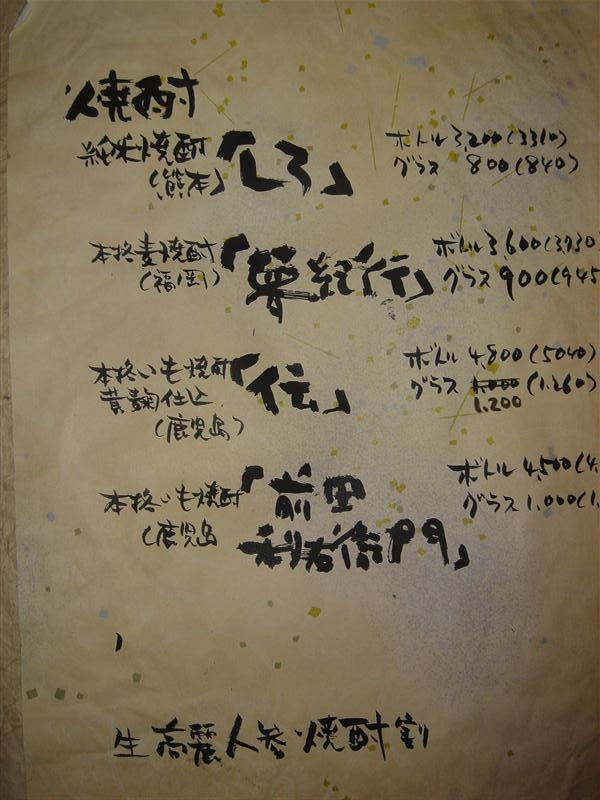 焼酎
純米焼酎「しろ」 ボトル 3,200(3310)
(熊本) グラス 800(840)
本格麦焼酎 ボトル 3,600(3,730
(福岡) 「夢紀行」 グラス 900(945
本格いも焼酎 「伝」 ボトル 4,800(5040)
黄麹仕込 グラス 1,000 (1,260)
1,200
(鹿児島)
本格いも焼酎 「前田 ボトル 4,500(4,
(鹿児島 利右衛門」 グラス 1,000(1,
生高麗人参焼酎割